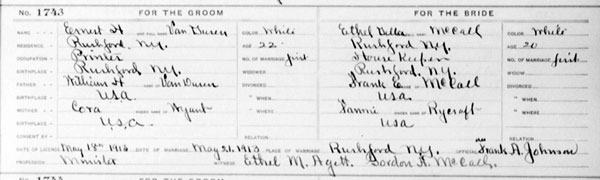 No. 1743 FOR THE GROOM FOR THE BRIDE
NAME Ernest H Van Buren COLOR White Ethel Della McCall COLOR White
RESIDENCE Rushford, N.Y. AGE 22 Rushford N.Y. AGE 20
OCCUPATION Printer NO. OF MARRIAGE first House Keeper NO. OF MARRIAGE first
BIRTHPLACE Rushford N.Y. WIDOWER Rushford, N.Y. WIDOW
FATHER William H Van Buren DIVORCED Frank E McCall DIVORCED
BIRTHPLACE U.S.A. " WHEN U.S.A. " WHEN
MOTHER Cora MAIDEN NAME OF Wyant " WHERE Fannie MAIDEN NAME OF Rycroft " WHERE
BIRTHPLACE U.S.A. USA
CONSENT BY RELATION RELATION
DATE OF LICENSE May 18th 1913 DATE OF MARRIAGE May 21, 1913 PLACE OF MARRIAGE Rushford N.Y. OFFICIAL Frank A. Johnson
PROFESSION Minister WITNESS Ethel M. Agett Gordon A. McCall
No. 1733 FOR THE GROOM FOR THE BRIDE